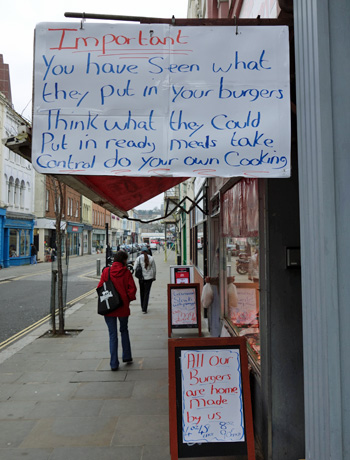 Important
You have Seen what
they put in your burgers
Think what they Could
Put in ready meals take
Control do your own Cooking
All Our
Burgers
are home
Made
by us